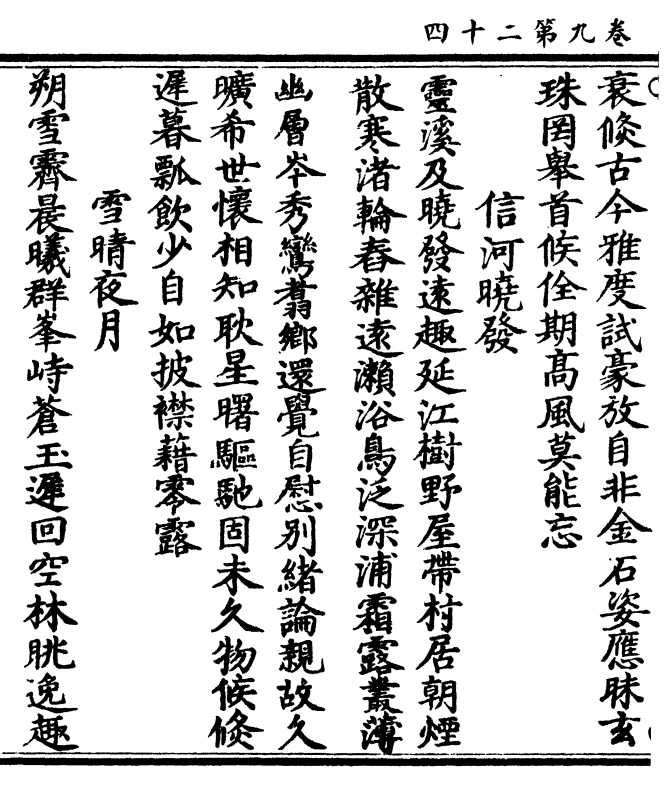 卷九第二十四
衰倐古今雅度試豪放自非金石姿應昧玄
珠罔舉首候佺期高風莫能忘
信河曉發
靈溪及曉發遠趣延江樹野屋帶村居朝煙
散寒渚輪舂雜遠瀨浴鳥泛深浦霜露叢薄
幽層岑秀鸞翥鄉還覺自慰別緒論親故久
曠希世懷相知耿星曙驅馳固未久物候倐
遲暮瓢飲少自如披襟藉零露
雪晴夜月
朔雪霽晨曦群峯峙蒼玉遲回空林眺逸趣